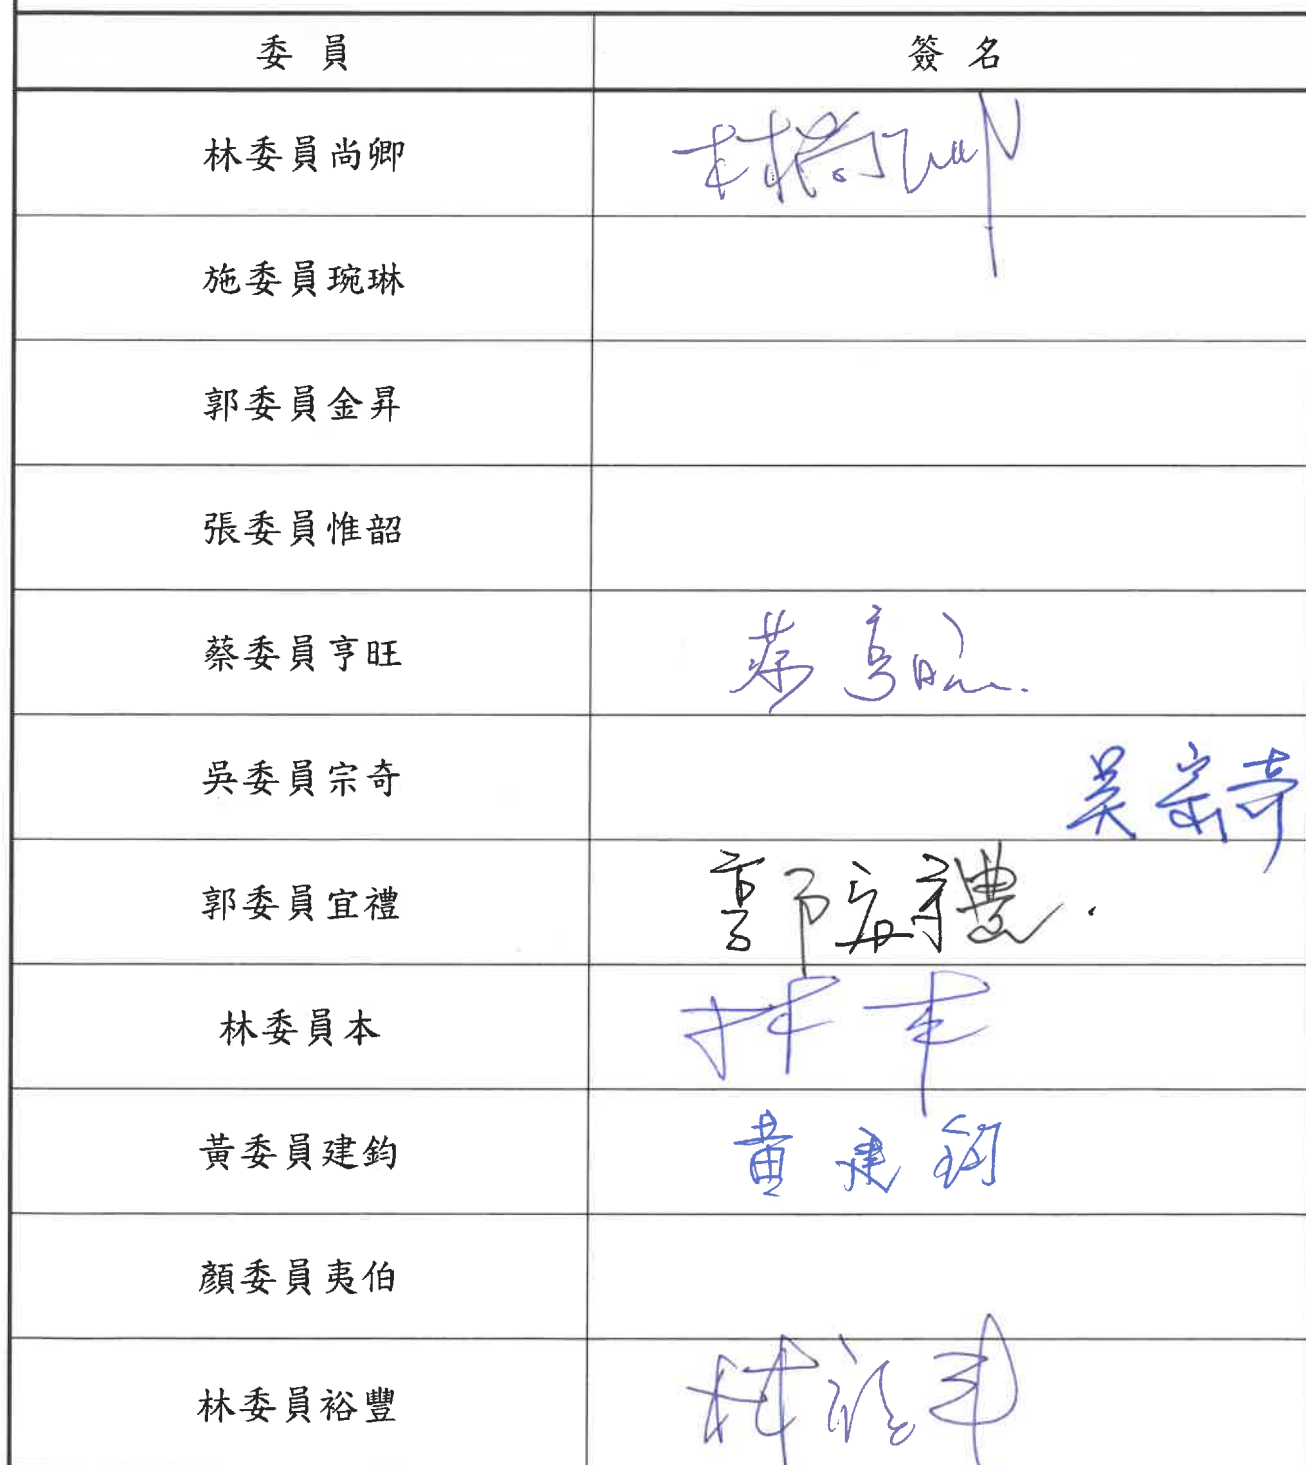 委員 簽名
林委員尚卿 林尚卿
施委員琬琳
郭委員金昇
張委員惟韶
蔡委員亨旺 蔡亨旺
吳委員宗奇 吳宗奇
郭委員宜禮 郭宜禮
林委員本 林本
黃委員建鈞 黃建鈞
顏委員夷伯
林委員裕豐 林裕丰